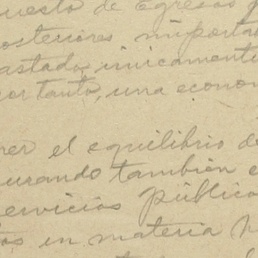 uesto de Egresos
osteriores importa
astados, únicament
or tanto, una econo
ner el equilibrio de
usando también e
servicios público
os en materia